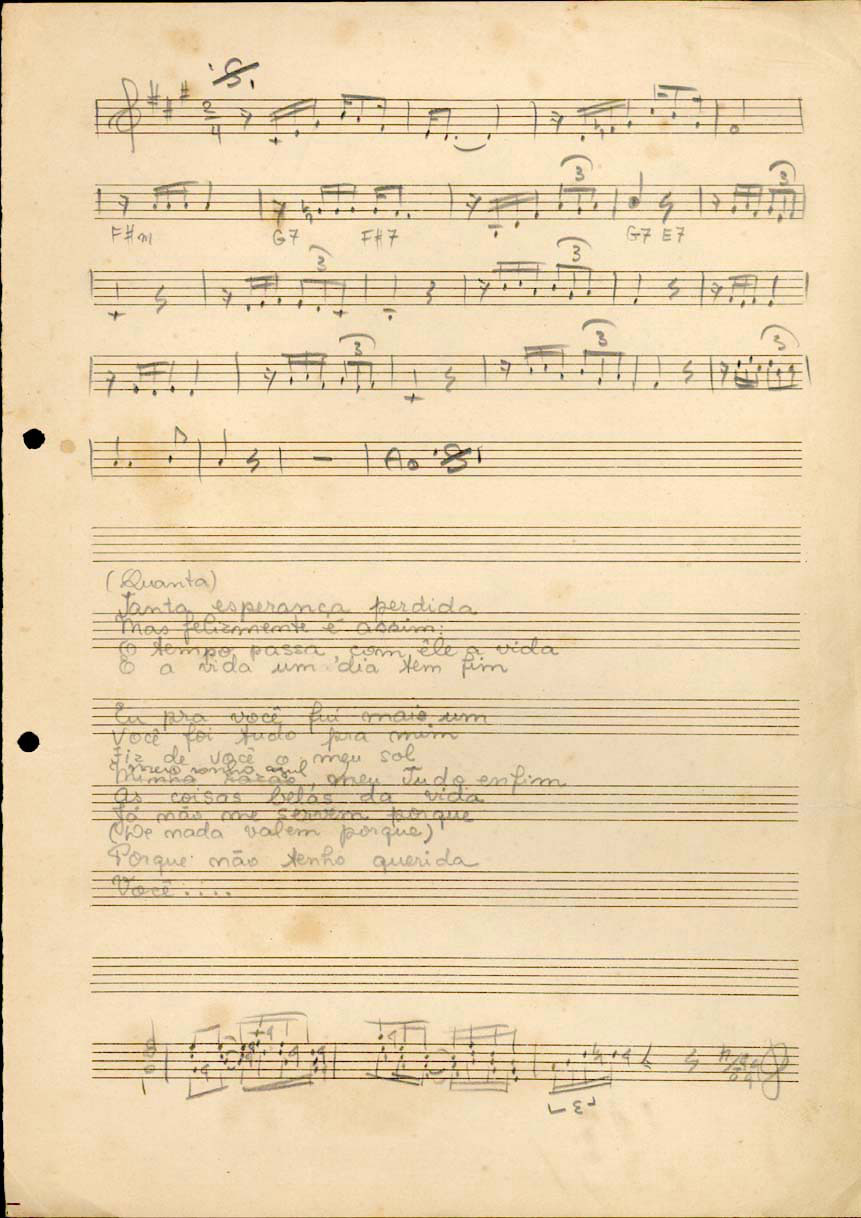 2
4
3
3
F#m G7 F#7 G7 E7
3
3
3
3
3
Ao
(Quanta)
Tanta esperança perdida
Mas felizmente é assim:
O tempo passa, com êle a vida
E a vida um dia tem fim
Eu pra você fui mais um
Você foi tudo pra mim
Fiz de você o meu sol
meu sonho azul
Minha razão, meu Tudo enfim
As coisas belas da vida
Já não me servem porque
(De nada valem porque)
Porque não tenho querida
Você....
3